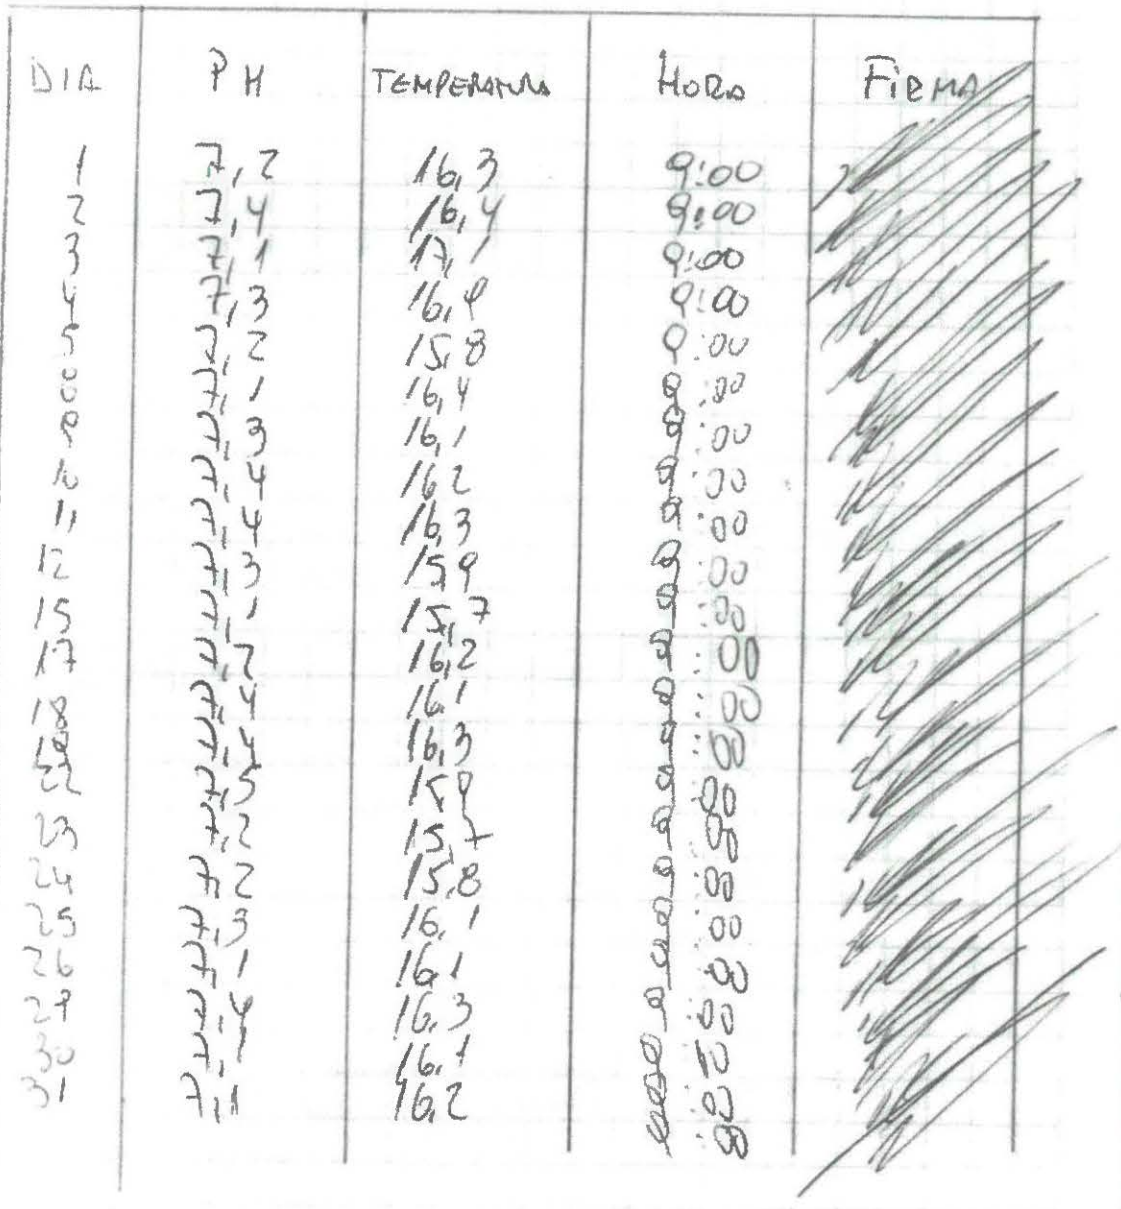 DIA PH TEMPERATURA HORA FIRMA
1 7,2 16,3 9:00
2 7,4 16,4 9:00
3 7,1 17,1 9:00
4 7,3 16,9 9:00
5 7,2 15,8 9:00
7,1 16,4 9:00
7,3 16,1 9:00
10 7,4 16,2 9:00
11 7,4 16,3 9:00
12 7,3 15,9 9:00
15 7,1 15,7 9:00
17 7,2 16,2 9:00
18 7,4 16,1 9:00
19 7,4 16,3 9:00
22 7,5 15,9 9:00
23 7,2 15,7 9:00
24 7,2 15,8 9:00
25 7,3 16,1 9:00
26 7,1 16,1 9:00
29 7,4 16,3 9:00
30 7,1 16,1 9:00
31 7,1 16,2 9:00